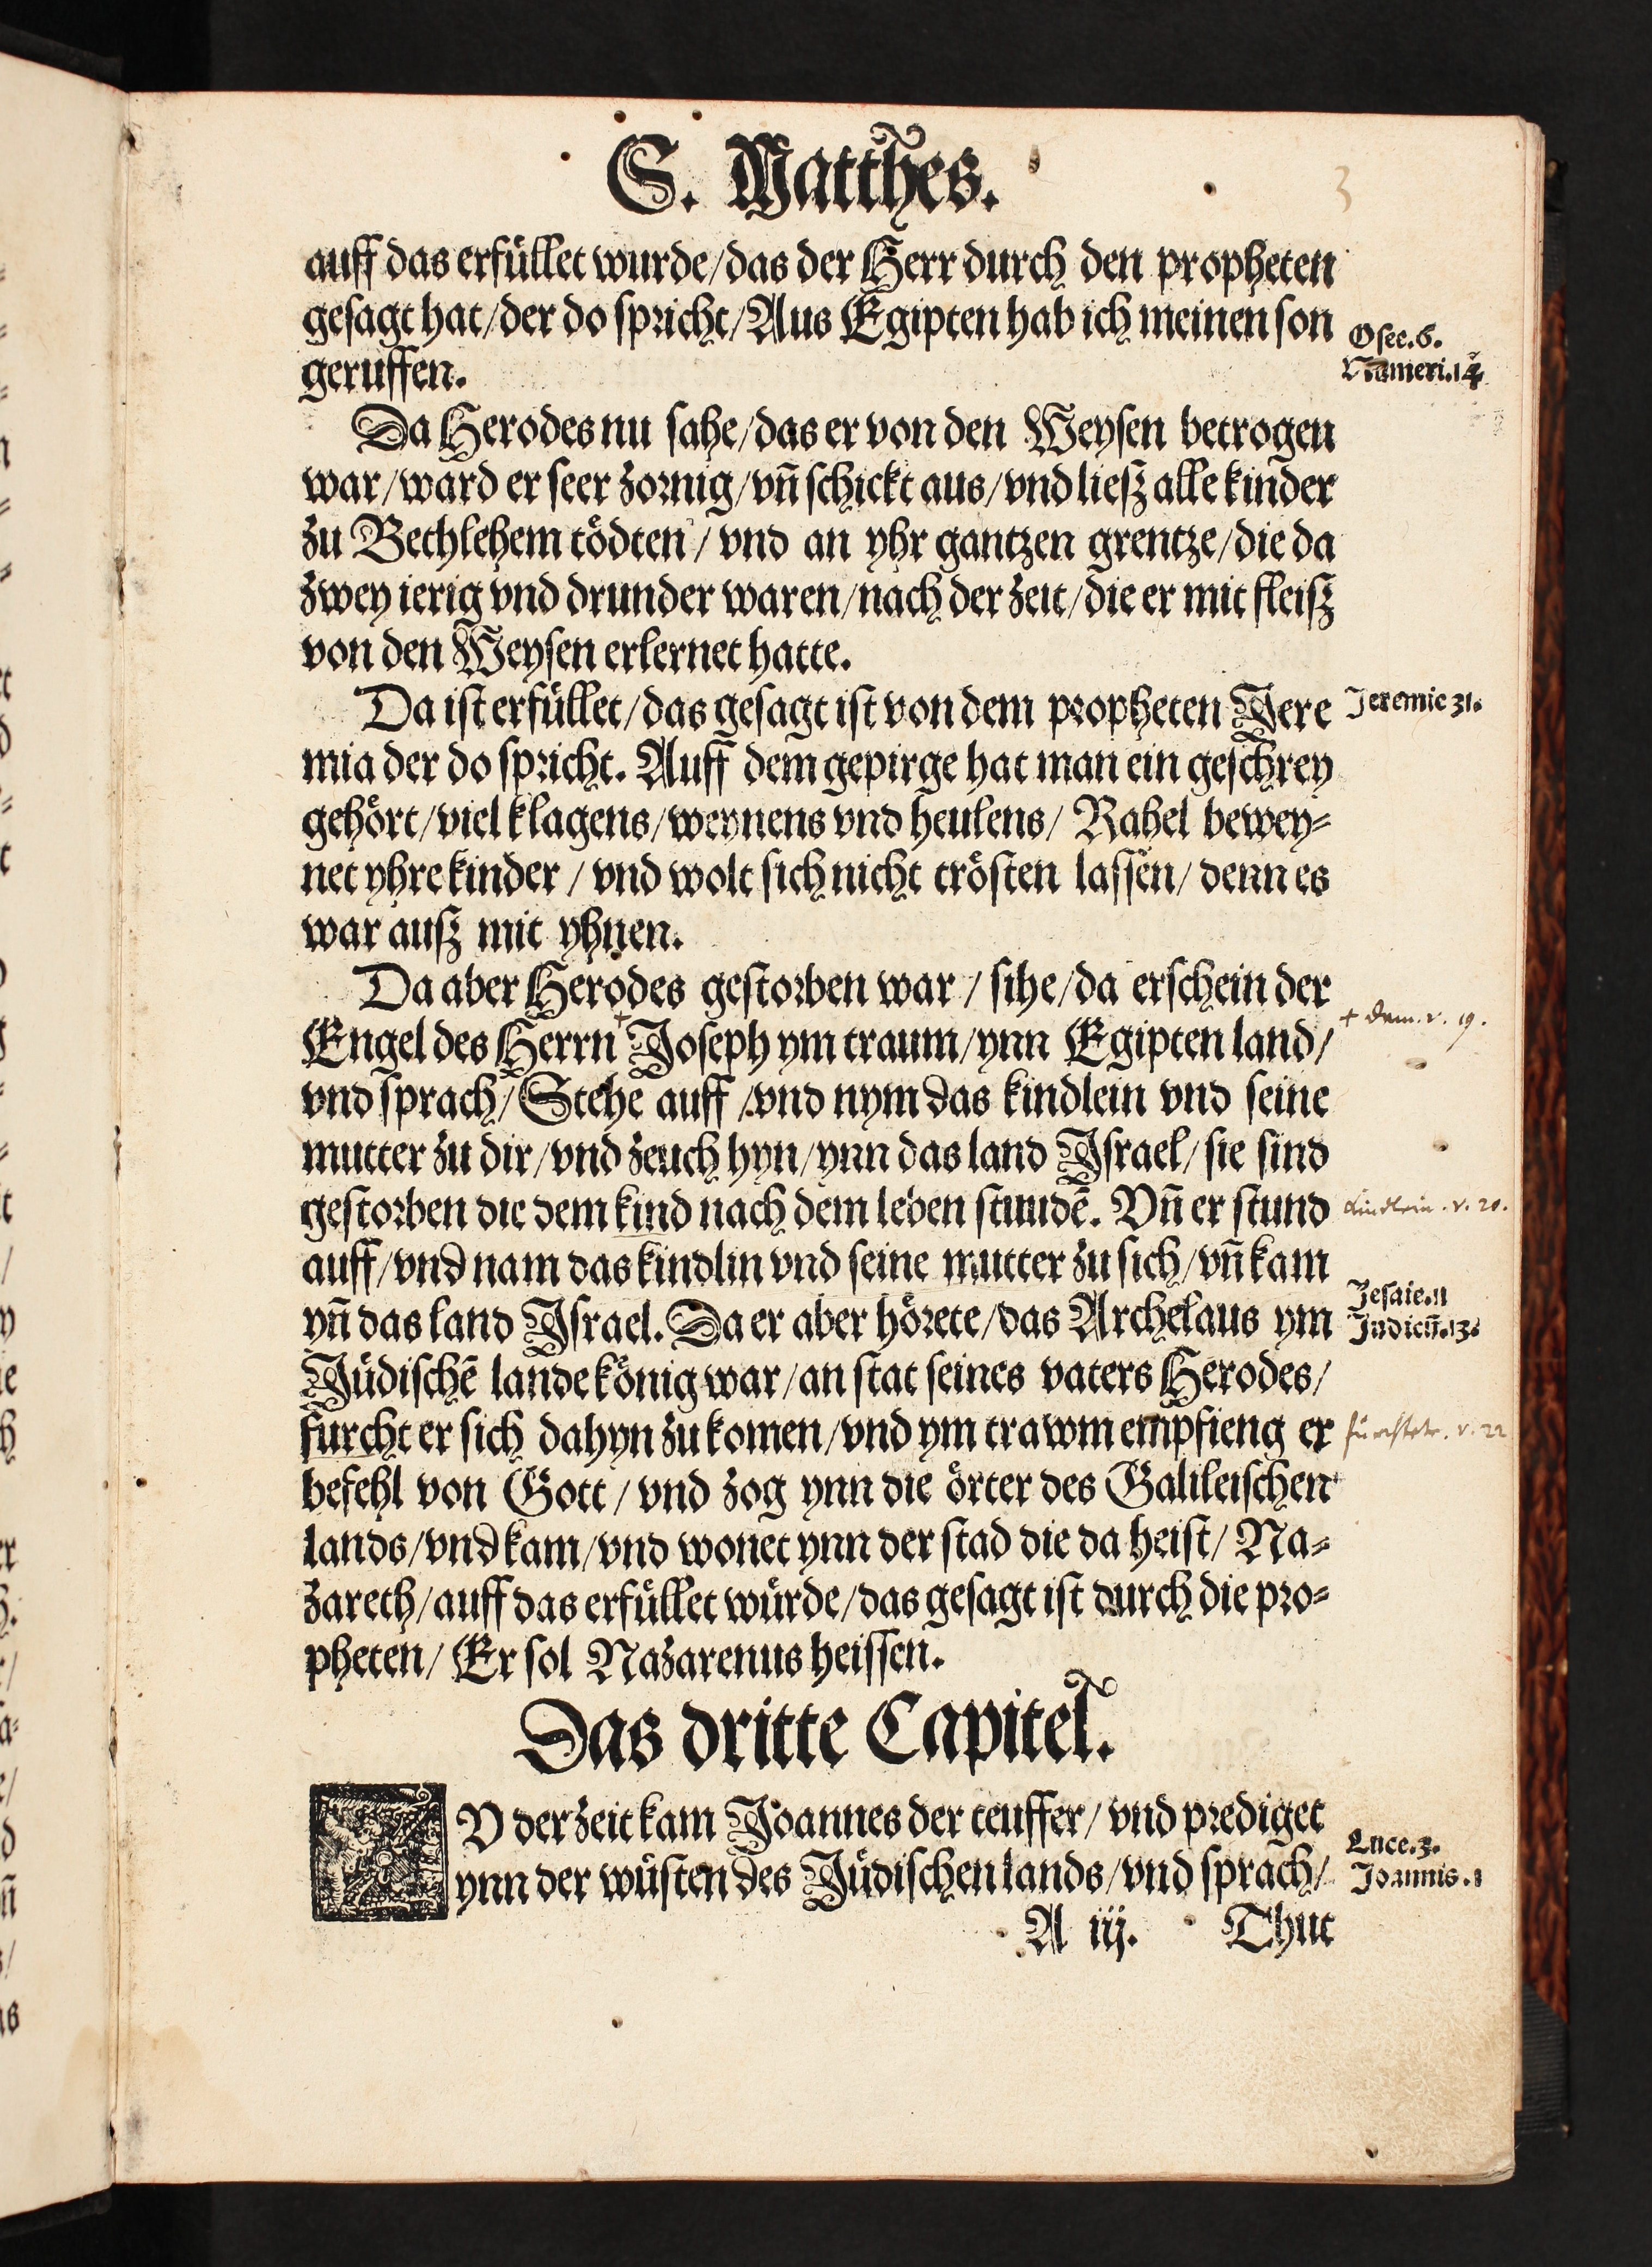 S. Matthes.
3
auff das erfüllet wurde/das der Herr durch den propheten
gesagt hat/der do spricht/Aus Egipten hab ich meinen son
Osee.6.
geruffen.
Numeri.14
Da Herodes nu sahe/das er von den Weysen betrogen
war/ward er seer zornig/vñ schickt aus/vnd liesz alle kinder
zu Bethlehem tödten/vnd an yhr gantzen grentze/die da
zwey ierig vnd drunder waren/nach der zeit/die er mit fleisz
von den Weysen erlernet hatte.
Da ist erfüllet/das gesagt ist von dem propheten Jere
Jeremie 31.
mia der do spricht. Auff dem gepirge hat man ein geschrey
gehört/viel klagens/weynens vnd heulens/ Rahel bewey-
net yhre kinder/vnd wolt sich nicht trösten lassen/denn es
war ausz mit yhnen.
Da aber Herodes gestorben war/sihe/da erschein der
Engel des Herrn + Joseph ym traum/ynn Egipten land/
+ dem. v. 19.
vnd sprach/Stehe auff/vnd nym das kindlein vnd seine
mutter zu dir/vnd zeuch hyn/ynn das land Israel/sie sind
gestorben die dem kind nach dem leben stundē. Vñ er stund
kindlein. v. 20.
auff/vnd nam das kindlin vnd seine mutter zu sich/vñ kam
Jesaie.11
yñ das land Israel. Da er aber hörete/das Archelaus ym
Judicū.13.
Jüdischē lande könig war/an stat seines vaters Herodes/
furcht er sich dahyn zu komen/vnd ym trawm empfieng er
fürchtete. v. 22
befehl von Gott/vnd zog ynn die örter des Galileischen
lands/vnd kam/vnd wonet ynn der stad die da heist/ Na-
zareth/auff das erfüllet würde/das gesagt ist durch die pro-
pheten/ Er sol Nazarenus heissen.
Das dritte Capitel.
ZV der zeit kam Joannes der teuffer/vnd prediget
Luce.3.
ynn der wüsten des Jüdischen lands/vnd sprach/
Joannis.1
A iij. Thut